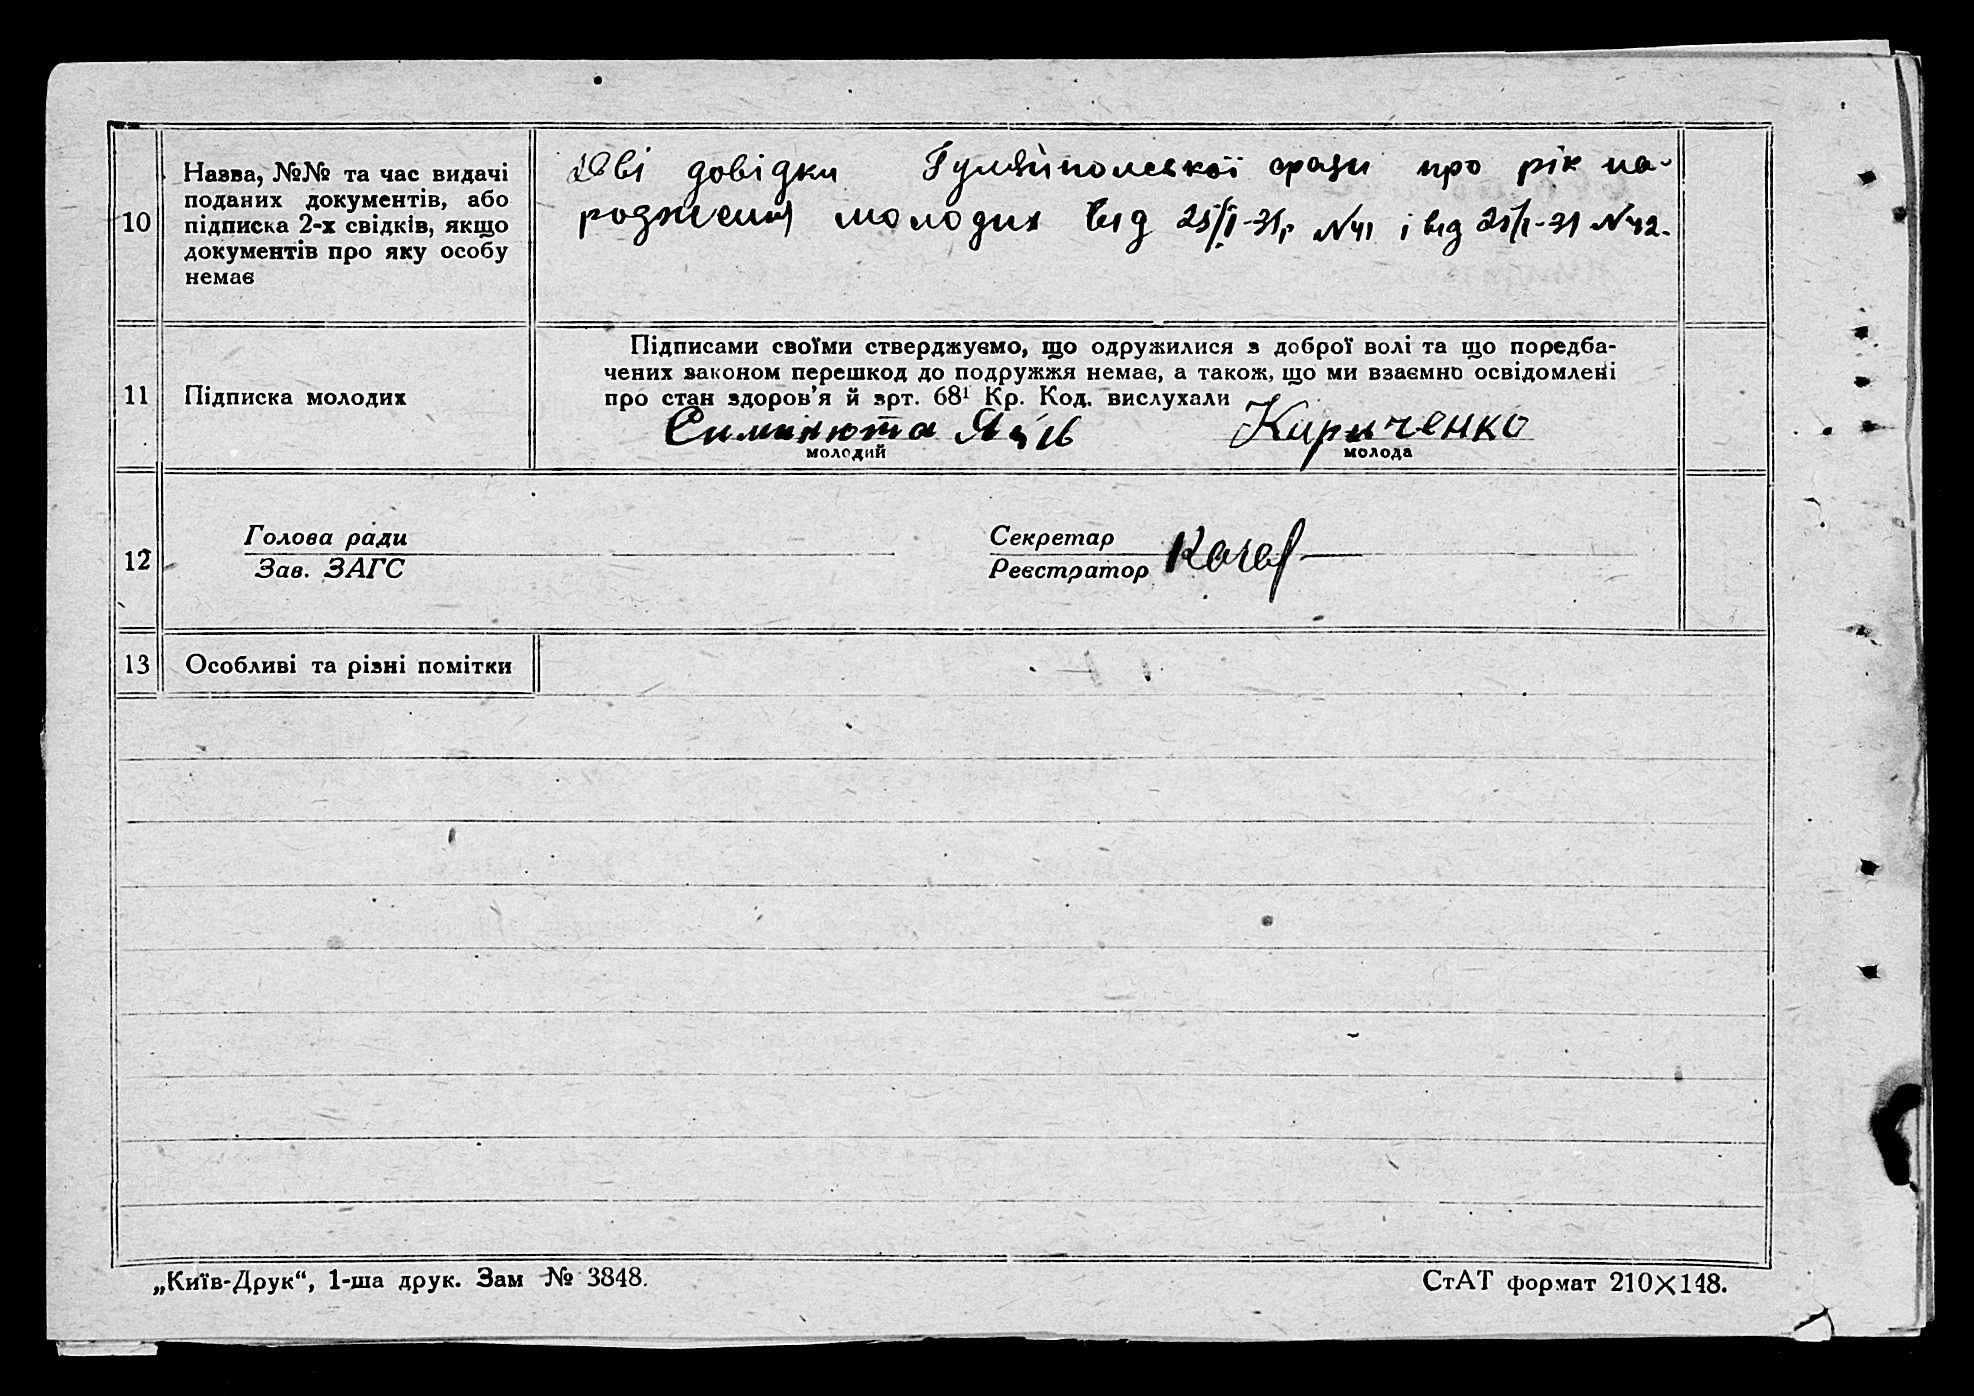 10
Назва, №№ та час видачі
поданих документів, або
підписка 2-х свідків, якщо
документів про яку особу
немає
Дві довідки Гуляйпольської сради про рік на-
родження молодих від 25/I-31р №41 і від 25/I-31 №42.
11
Підписка молодих
Підписами своїми стверджуємо, що одружилися з доброї волі та що поредба-
чених законом перешкод до подружжя немає, а також, що ми взаємно освідомлені
про стан здоров'я й арт. 68¹ Кр. Код. вислухали
Симинюта Яків Кириченко
молодий молода
12
Голова ради
Зав. ЗАГС
Секретар
Реєстратор
13
Особливі та різні помітки
„Київ-Друк“, 1-ша друк. Зам № 3848.
СтАТ формат 210×148.